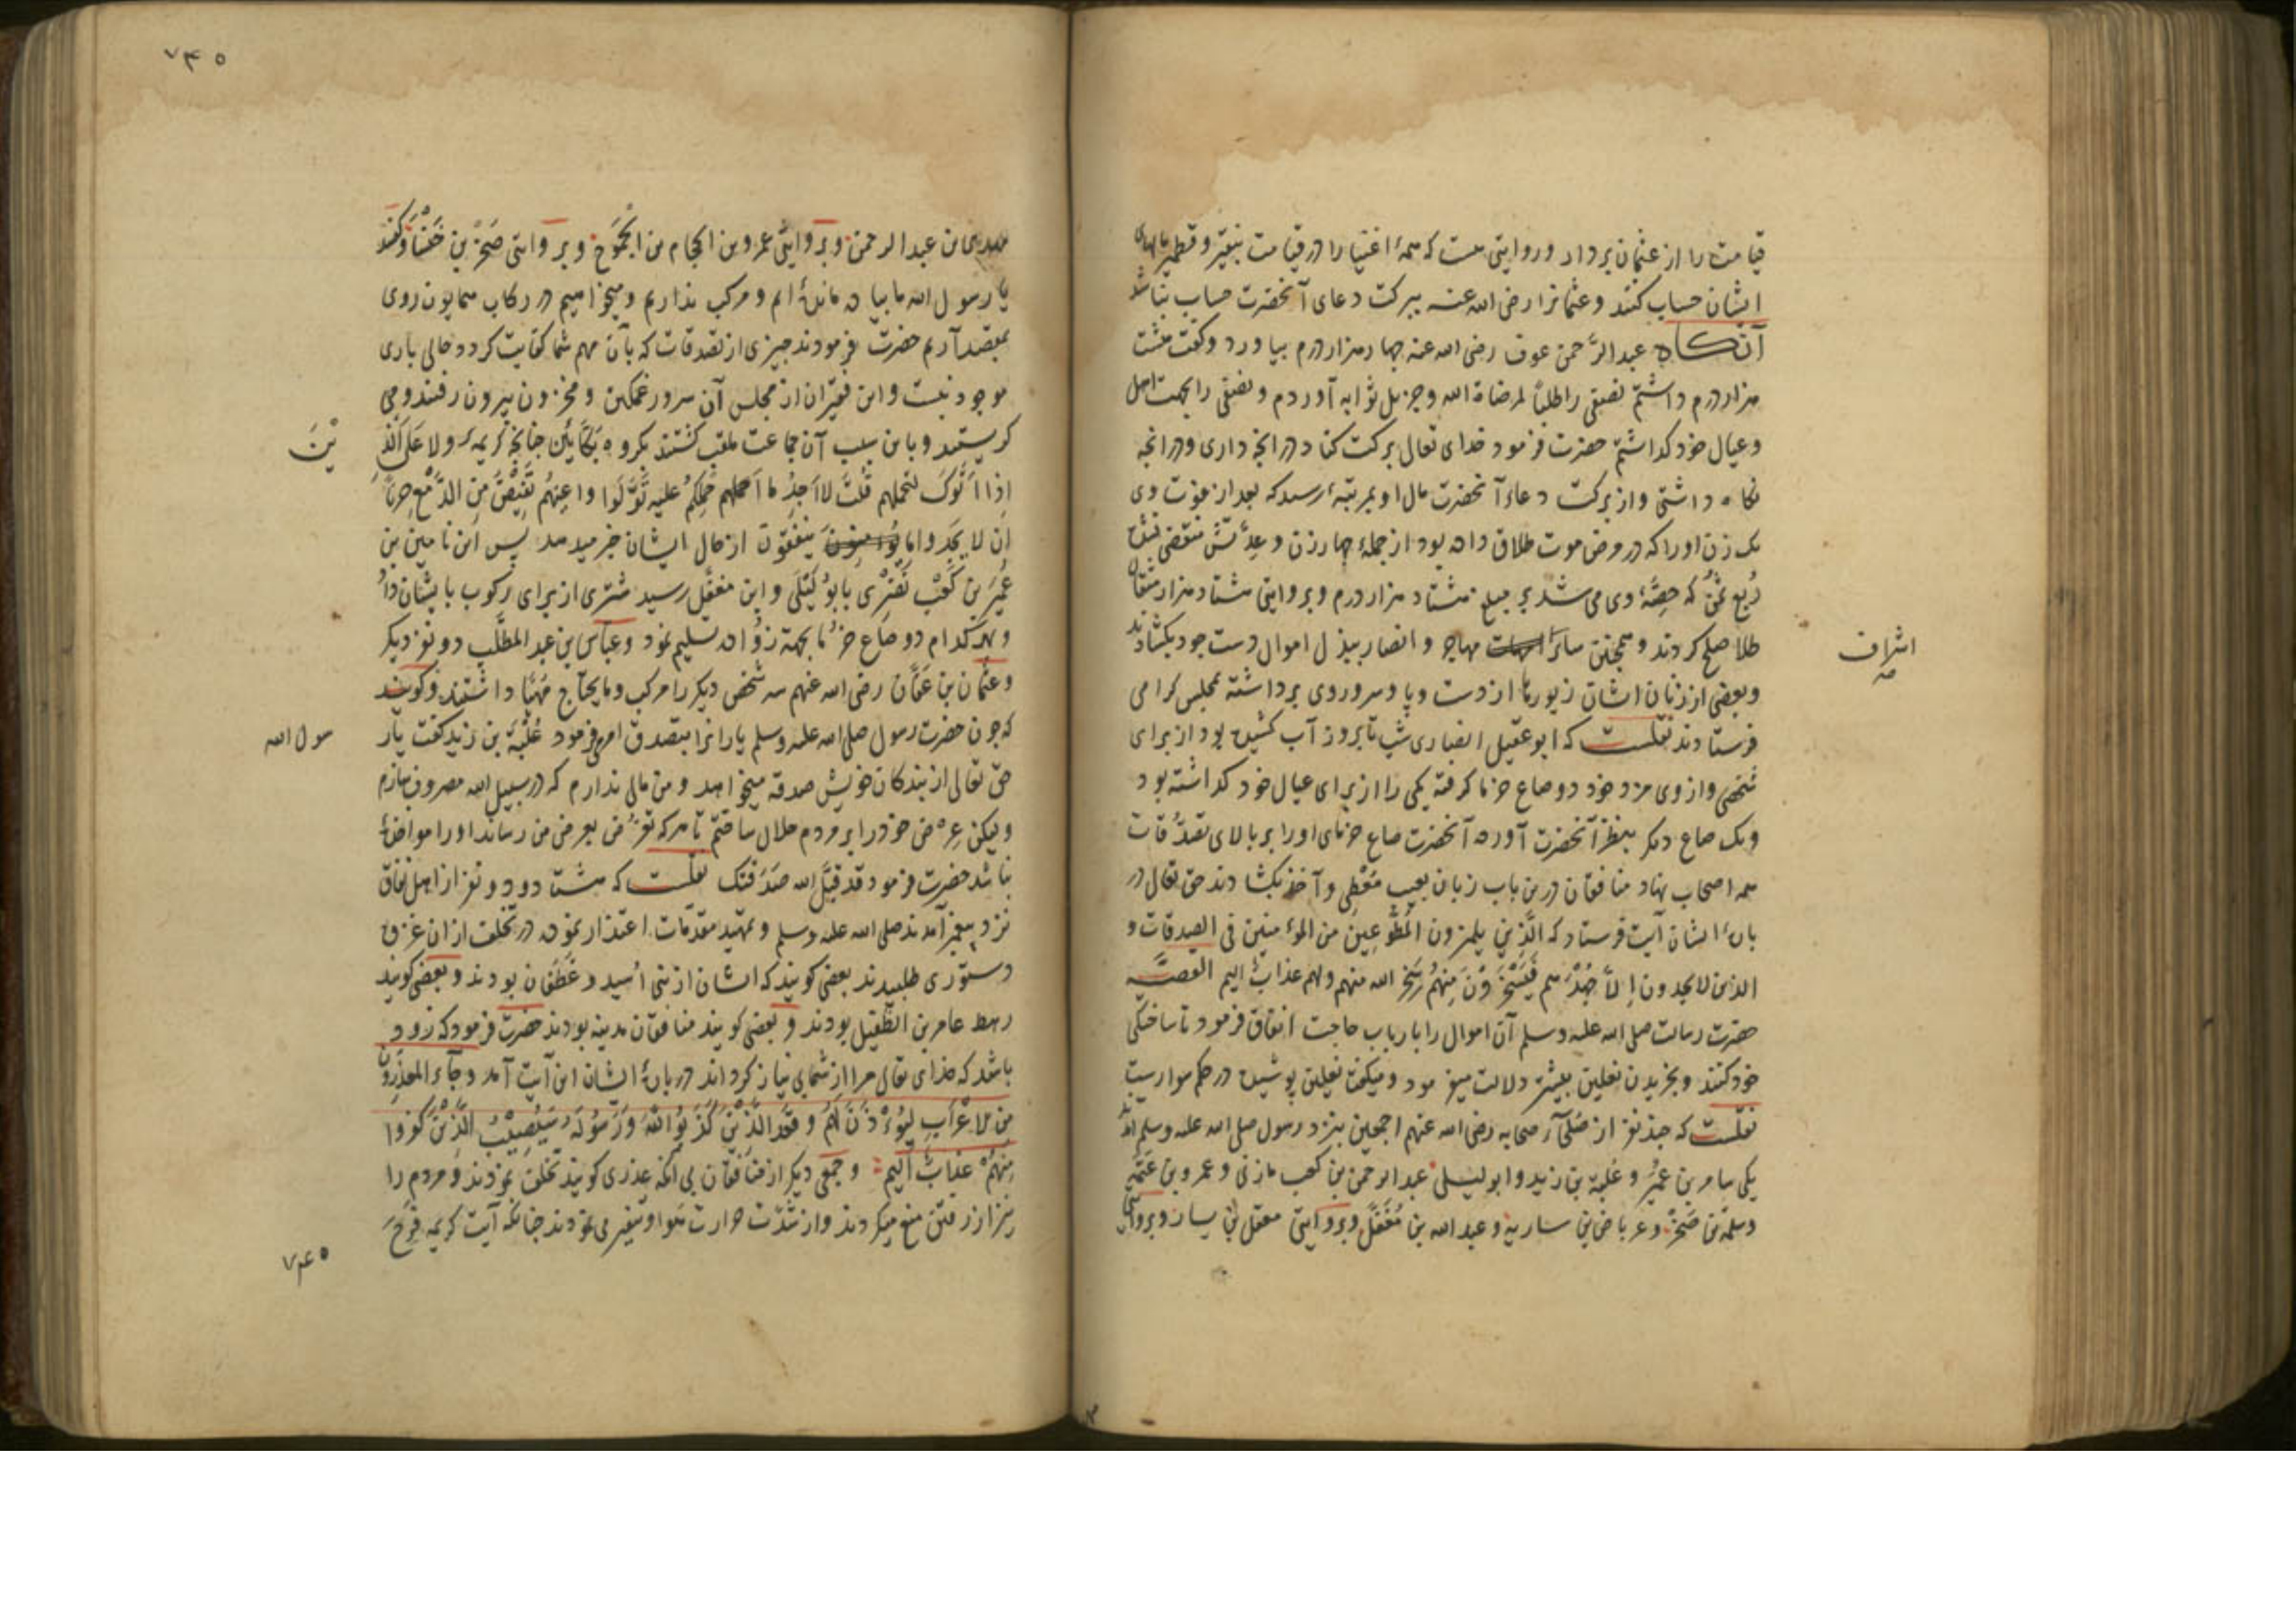 قیامت را از عثمان برداد و روایتی هست که همهٔ اغنیا را در قیامت بنقیر و قطمیر مالهای
ایشان حساب کنند و عثمانرا رضی الله عنه ببرکت دعای آنحضرت حساب نباشد
آنگاه عبد الرحمن عوف رضی الله عنه چهار هزار درم بیاورد و گفت هشت
هزار درم داشتم نصفی را طلباً لمرضاة الله و جزیل ثوابه آوردم و نصفی را بجهت اهل
و عیال خود گذاشتم حضرت فرمود خدای تعالی برکت کناد در انچه داری و در انچه
نگاه داشتی و از برکت دعاء آنحضرت مال او بمرتبهٔ رسید که بعد از فوت وی
یک زن او را که در مرض موت طلاق داده بود از جملهٔ چهار زن و عدتش منقضی نشده
ربع ثمن که حصهٔ وی می شد بر مبلغ هشتاد هزار درم و بروایتی هشتاد هزار مثقال
طلا صلح کردند و همچنین سائر مهاجر و انصار ببذل اموال دست جود بگشادند
اشراف
و بعضی از زنان ایشان زیورها از دست و پا و سر و روی برداشته بمجلس گرامی
فرستادند نقلست که ابو عقیل انصاری شب تا بروز آب کشیده بود از برای
شخصی و از وی مزد خود دو صاع خرما گرفته یکی را از برای عیال خود گذاشته بود
و یک صاع دیگر بنظر آنحضرت آورده آنحضرت صاع خرمای او را بر بالای تصدقات
همه اصحاب نهاد منافقان درین باب زبان بعیب معطی و آخذ بگشادند حق تعالی در
بارهٔ ایشان آیت فرستاد که الذین یلمزون المطوعین من المؤمنین فی الصدقات و
الذین لا یجدون الا جهدهم فیسخرون منهم سخر الله منهم ولهم عذاب الیم القصه
حضرت رسالت صلی الله علیه وسلم آن اموال را بارباب حاجت انفاق فرمود تا ساختگی
خود کنند و بخریدن نعلین بیشتر دلالت میفرمود و میگفت نعلین پوشیده در حکم سوار یست
نقلست که چند نفر از صلحآء صحابه رضی الله عنهم اجمعین بنزد رسول صلی الله علیه وسلم آمدند
یکی سالم بن عمیر و علبة بن زید و ابو لیلی عبد الرحمن بن کعب مازنی و عمرو بن عتمه
و سلمة بن صخر و عرباض بن ساریه و عبد الله بن مغفل و بروایتی معقل بن یسار و بروایتی
۷۴۵
بن عبد الرحمن و بروایتی عمرو بن الحمام بن الجموح و بروایتی صخر بن خنساء گفتند
یا رسول الله ما پیاده مانده ایم و مرکب نداریم و میخواهیم در رکاب همایون روی
بمقصد آریم حضرت فرمودند چیزی از تصدقات که بآن مهم شما کفایت کردد حالی باری
موجود نیست و این فقیران از مجلس آن سرور غمگین و محزون بیرون رفتند و می
گریستند و باین سبب آن جماعت ملقب گشتند بگروه بکائین چنانچه کریمهٔ ولا علی الذ
ینَ
اذا ما اتوک لتحملهم قلت لا اجد ما احملکم علیه تولوا واعینهم تفیض من الدمع حزناً
ان لا یجدوا ما ینفقون از حال ایشان خبر میدهد پس ابن یامین بن
عمیر بن کعب نضری بابو لیلی و ابن مغفل رسید شتری از برای رکوب بایشان داد
و بهر کدام دو صاع خرما بجهة زواده تسلیم نمود و عباس بن عبد المطلب دو نفر دیگر
و عثمان بن عفان رضی الله عنهم سه شخص دیگر را مرکب و ما یحتاج مهیا داشتند و گویند
که چون حضرت رسول صلی الله علیه وسلم یارانرا بتصدق امر فرمود علبة بن زید گفت یا ر
سول الله
حق تعالی از بندگان خویش صدقه میخواهد و من مالی ندارم که در سبیل الله مصروف سازم
ولیکن عرض خود را بر مردم حلال ساختم تا هر که تعرض بعرض من رساند او را مواخذهٔ
نباشد حضرت فرمود قد قبل الله صدقتک نقلست که هشتاد و دو نفر از اهل نفاق
نزد پیغمبر آمدند صلی الله علیه وسلم و تمهید مقدمات اعتذار نموده در تخلف از ان غزوه
دستوری طلبیدند بعضی گویند که ایشان از بنی اسید و غطفان بودند و بعضی گویند
رهط عامر بن الطفیل بودند و بعضی گویند منافقان مدینه بودند حضرت فرمود که زود
باشد که خدای تعالی مرا از شما بی نیاز گرداند در بارهٔ ایشان این آیت آمد وجآء المعذرون
من الاعراب لیؤذن لهم وقعد الذین کذبوا الله ورسوله سیصیب الذین کفروا
منهم عذاب الیم و جمعی دیگر از منافقان بی آنکه عذری گویند تخلف نمودند و مردم را
نیز از رفتن منع میکردند و از شدت حرارت هوا تنفیر می نمودند چنانکه آیت کریمه فرح
۷۴۵